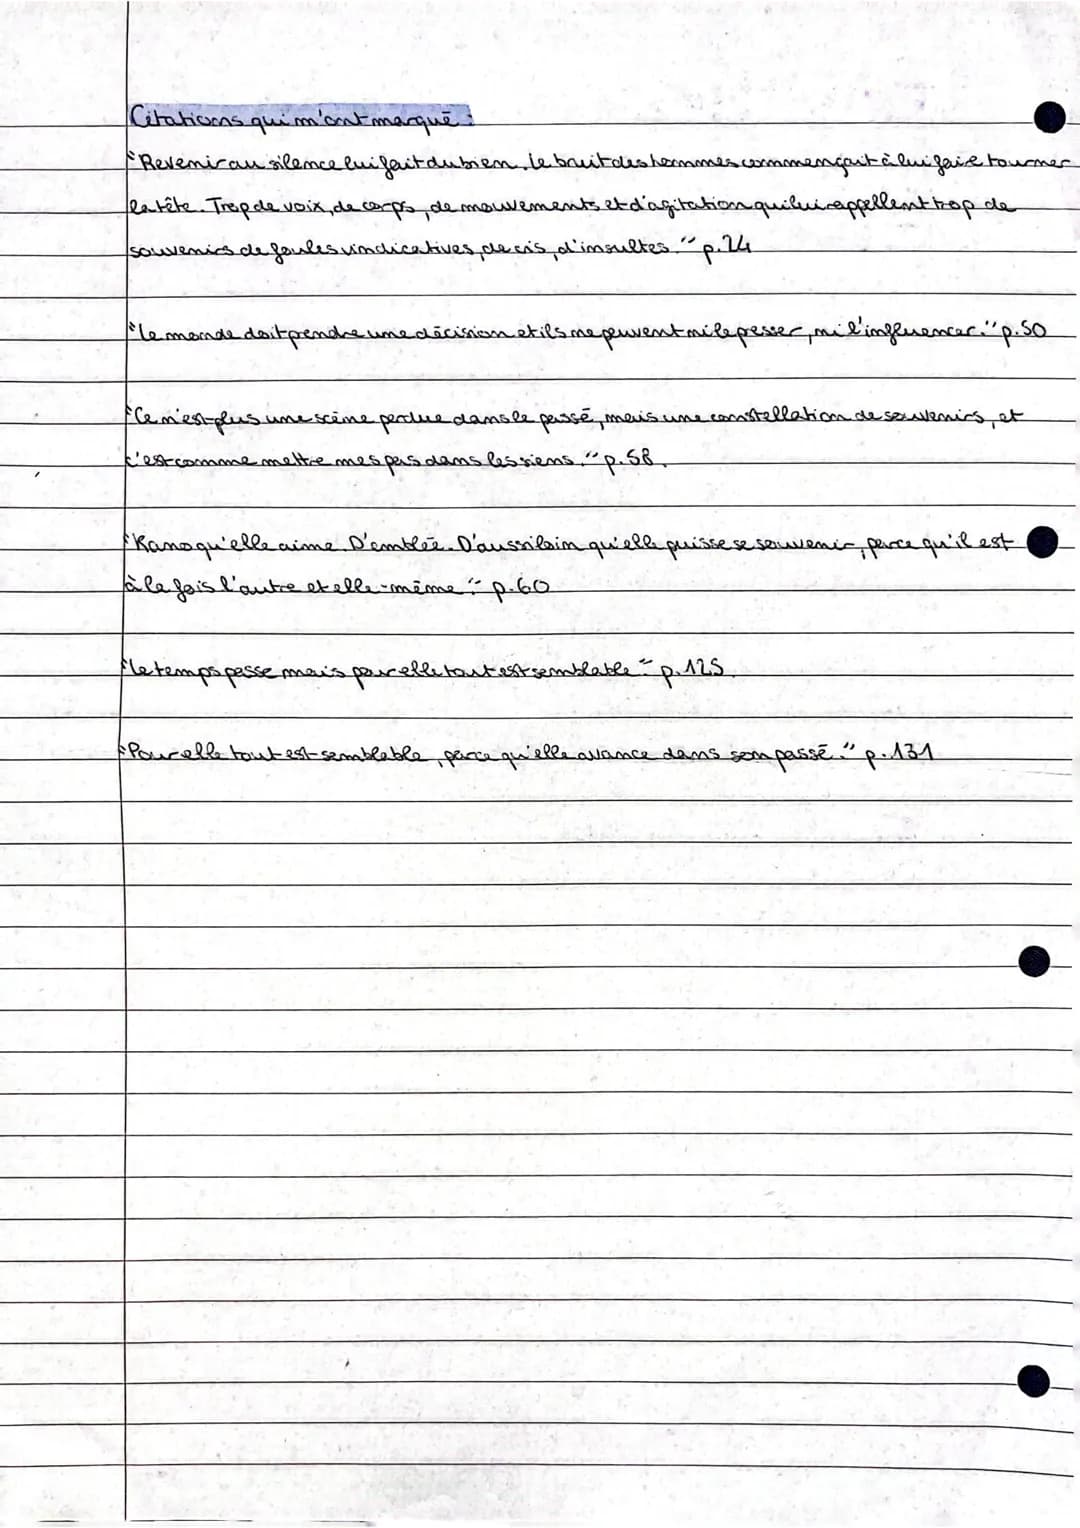 Citations qui m'ont marqué :
"Revenir au silence lui fait du bien. Le bruit des hommes commençait à lui faire tourner
la tête. Trop de voix, de corps, de mouvements et d'agitation qui lui rappellent trop de
souvenirs de foules vindicatives, de cris, d'insultes." p.24
"Le monde doit prendre une décision et ils ne peuvent ni le presser, ni l'influencer." p.50
"Ce n'est plus une scène perdue dans le passé, mais une constellation de souvenirs, et
c'est comme mettre mes pas dans les siens." p.58.
"Kano qu'elle aime. D'emblée. D'aussi loin qu'elle puisse se souvenir, parce qu'il est
à la fois l'autre et elle-même." p.60
"Le temps passe mais pour elle tout est semblable." p.125.
"Pour elle tout est semblable, parce qu'elle avance dans son passé." p.131